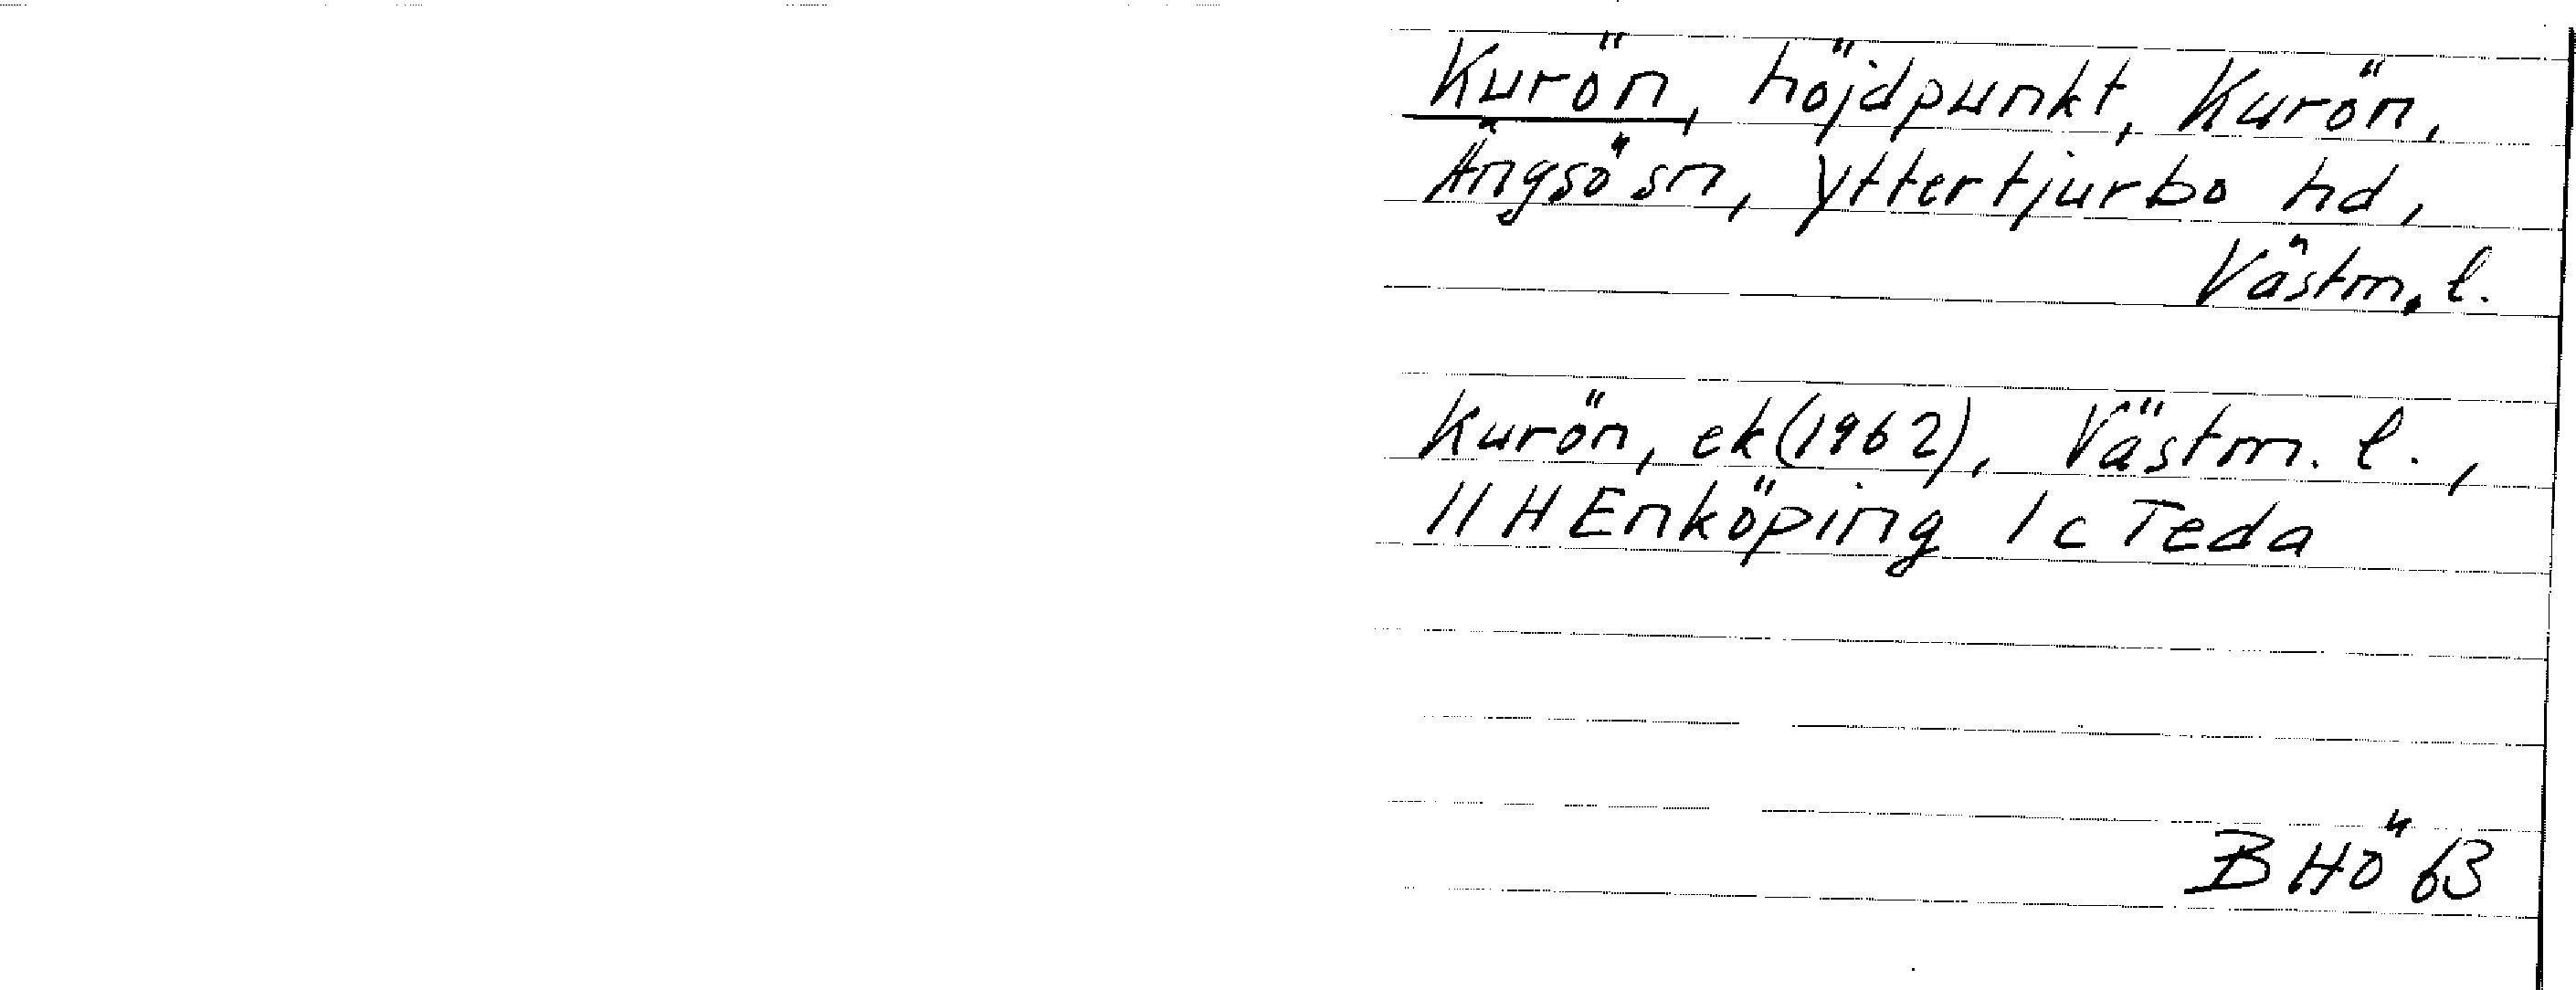 Kurön, höjdpunkt, Kurön,
Ängsö sn, Yttertjurbo hd,
Västm. l.
Kurön, ek (1962), Västm. l.,
11 H Enköping 1 c Teda
B HÖ 63